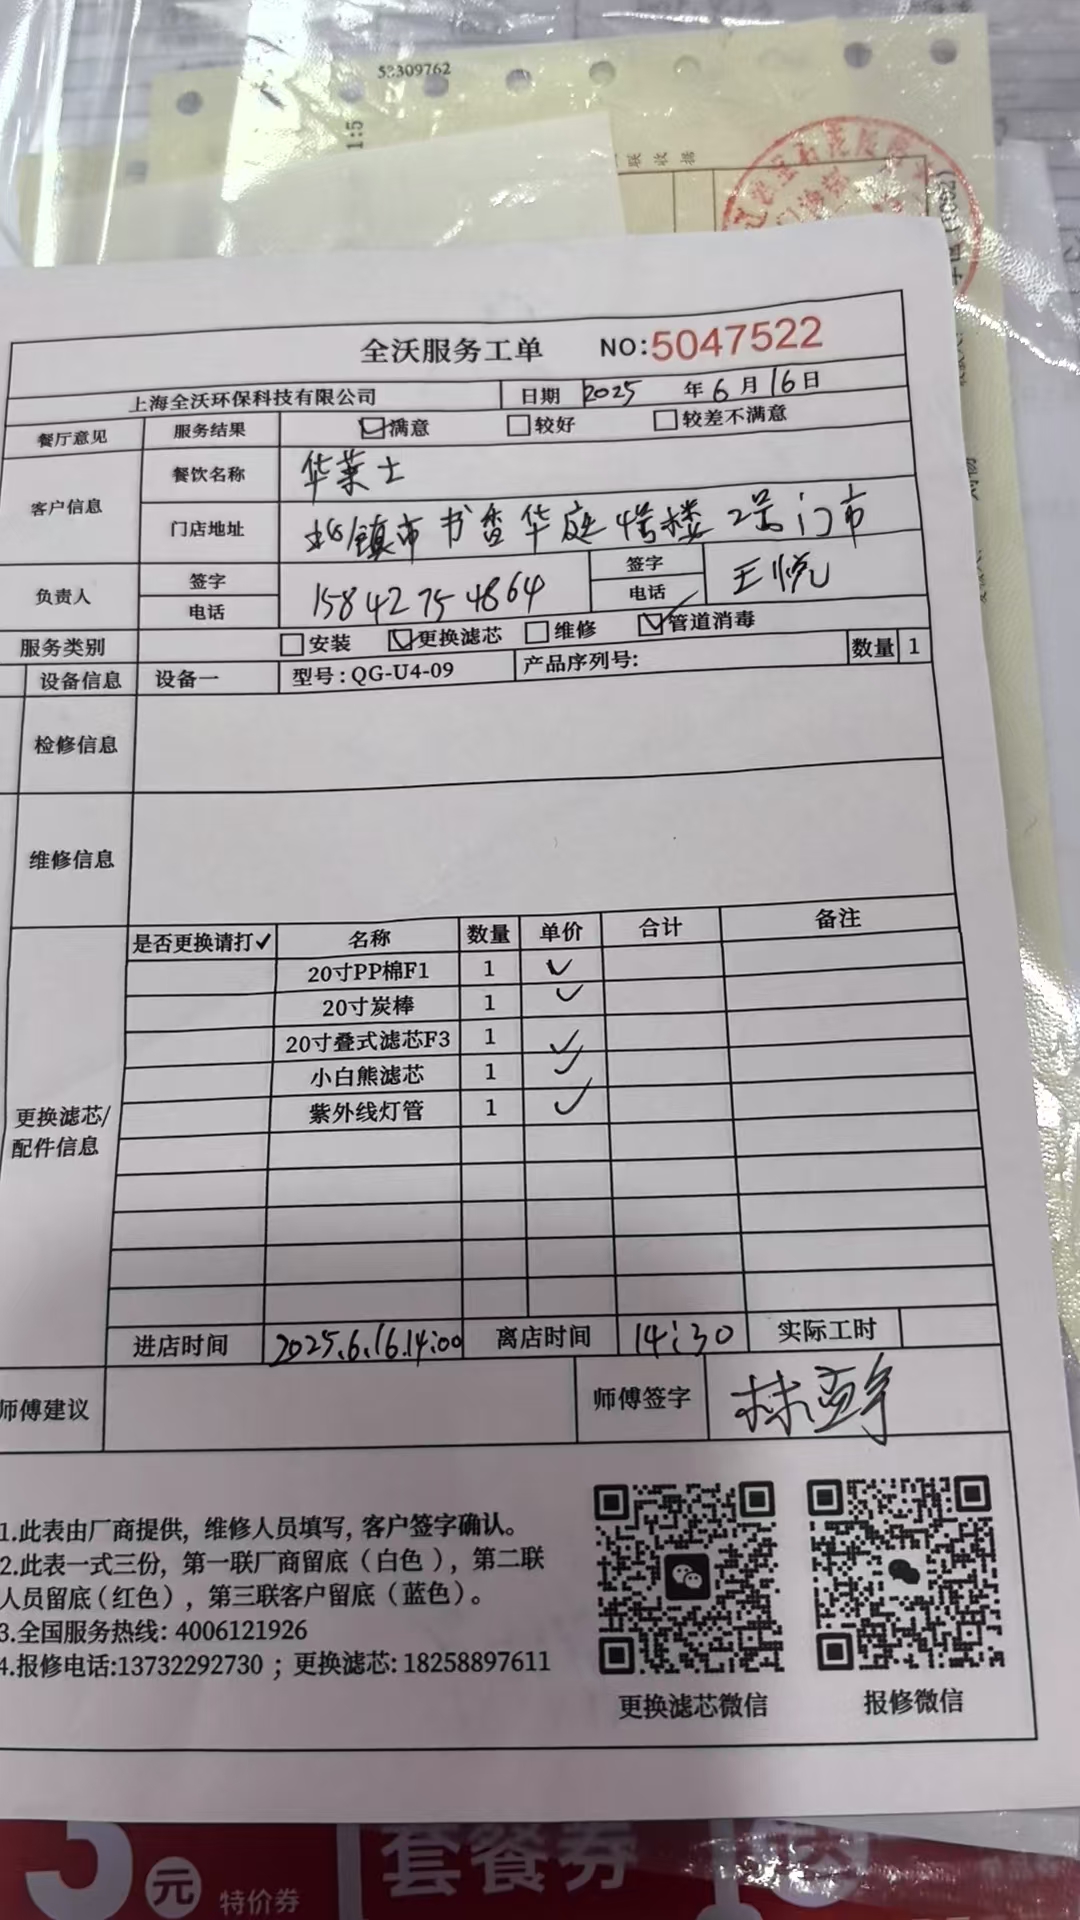 53309762
1:5
联 收 据
全沃服务工单 NO:5047522
上海全沃环保科技有限公司 日期 2025 年 6 月 16 日
餐厅意见 服务结果 满意 较好 较差不满意
客户信息 餐饮名称 华莱士
门店地址 北镇市书香华庭4号楼2号门市
负责人 签字 电话 15842754864 签字 电话 王悦
服务类别 安装 更换滤芯 维修 管道消毒
设备信息 设备一 型号:QG-U4-09 产品序列号: 数量 1
检修信息
维修信息
更换滤芯/配件信息
是否更换请打✓ 名称 数量 单价 合计 备注
20寸PP棉F1 1 ✓
20寸炭棒 1 ✓
20寸叠式滤芯F3 1 ✓
小白熊滤芯 1 ✓
紫外线灯管 1 ✓
进店时间 2025.6.16.14:00 离店时间 14:30 实际工时
师傅建议 师傅签字
1.此表由厂商提供, 维修人员填写, 客户签字确认。
2.此表一式三份, 第一联厂商留底(白色), 第二联
人员留底(红色), 第三联客户留底(蓝色)。
3.全国服务热线: 4006121926
4.报修电话:13732292730 ; 更换滤芯: 18258897611
更换滤芯微信 报修微信
5元 特价券 套餐券